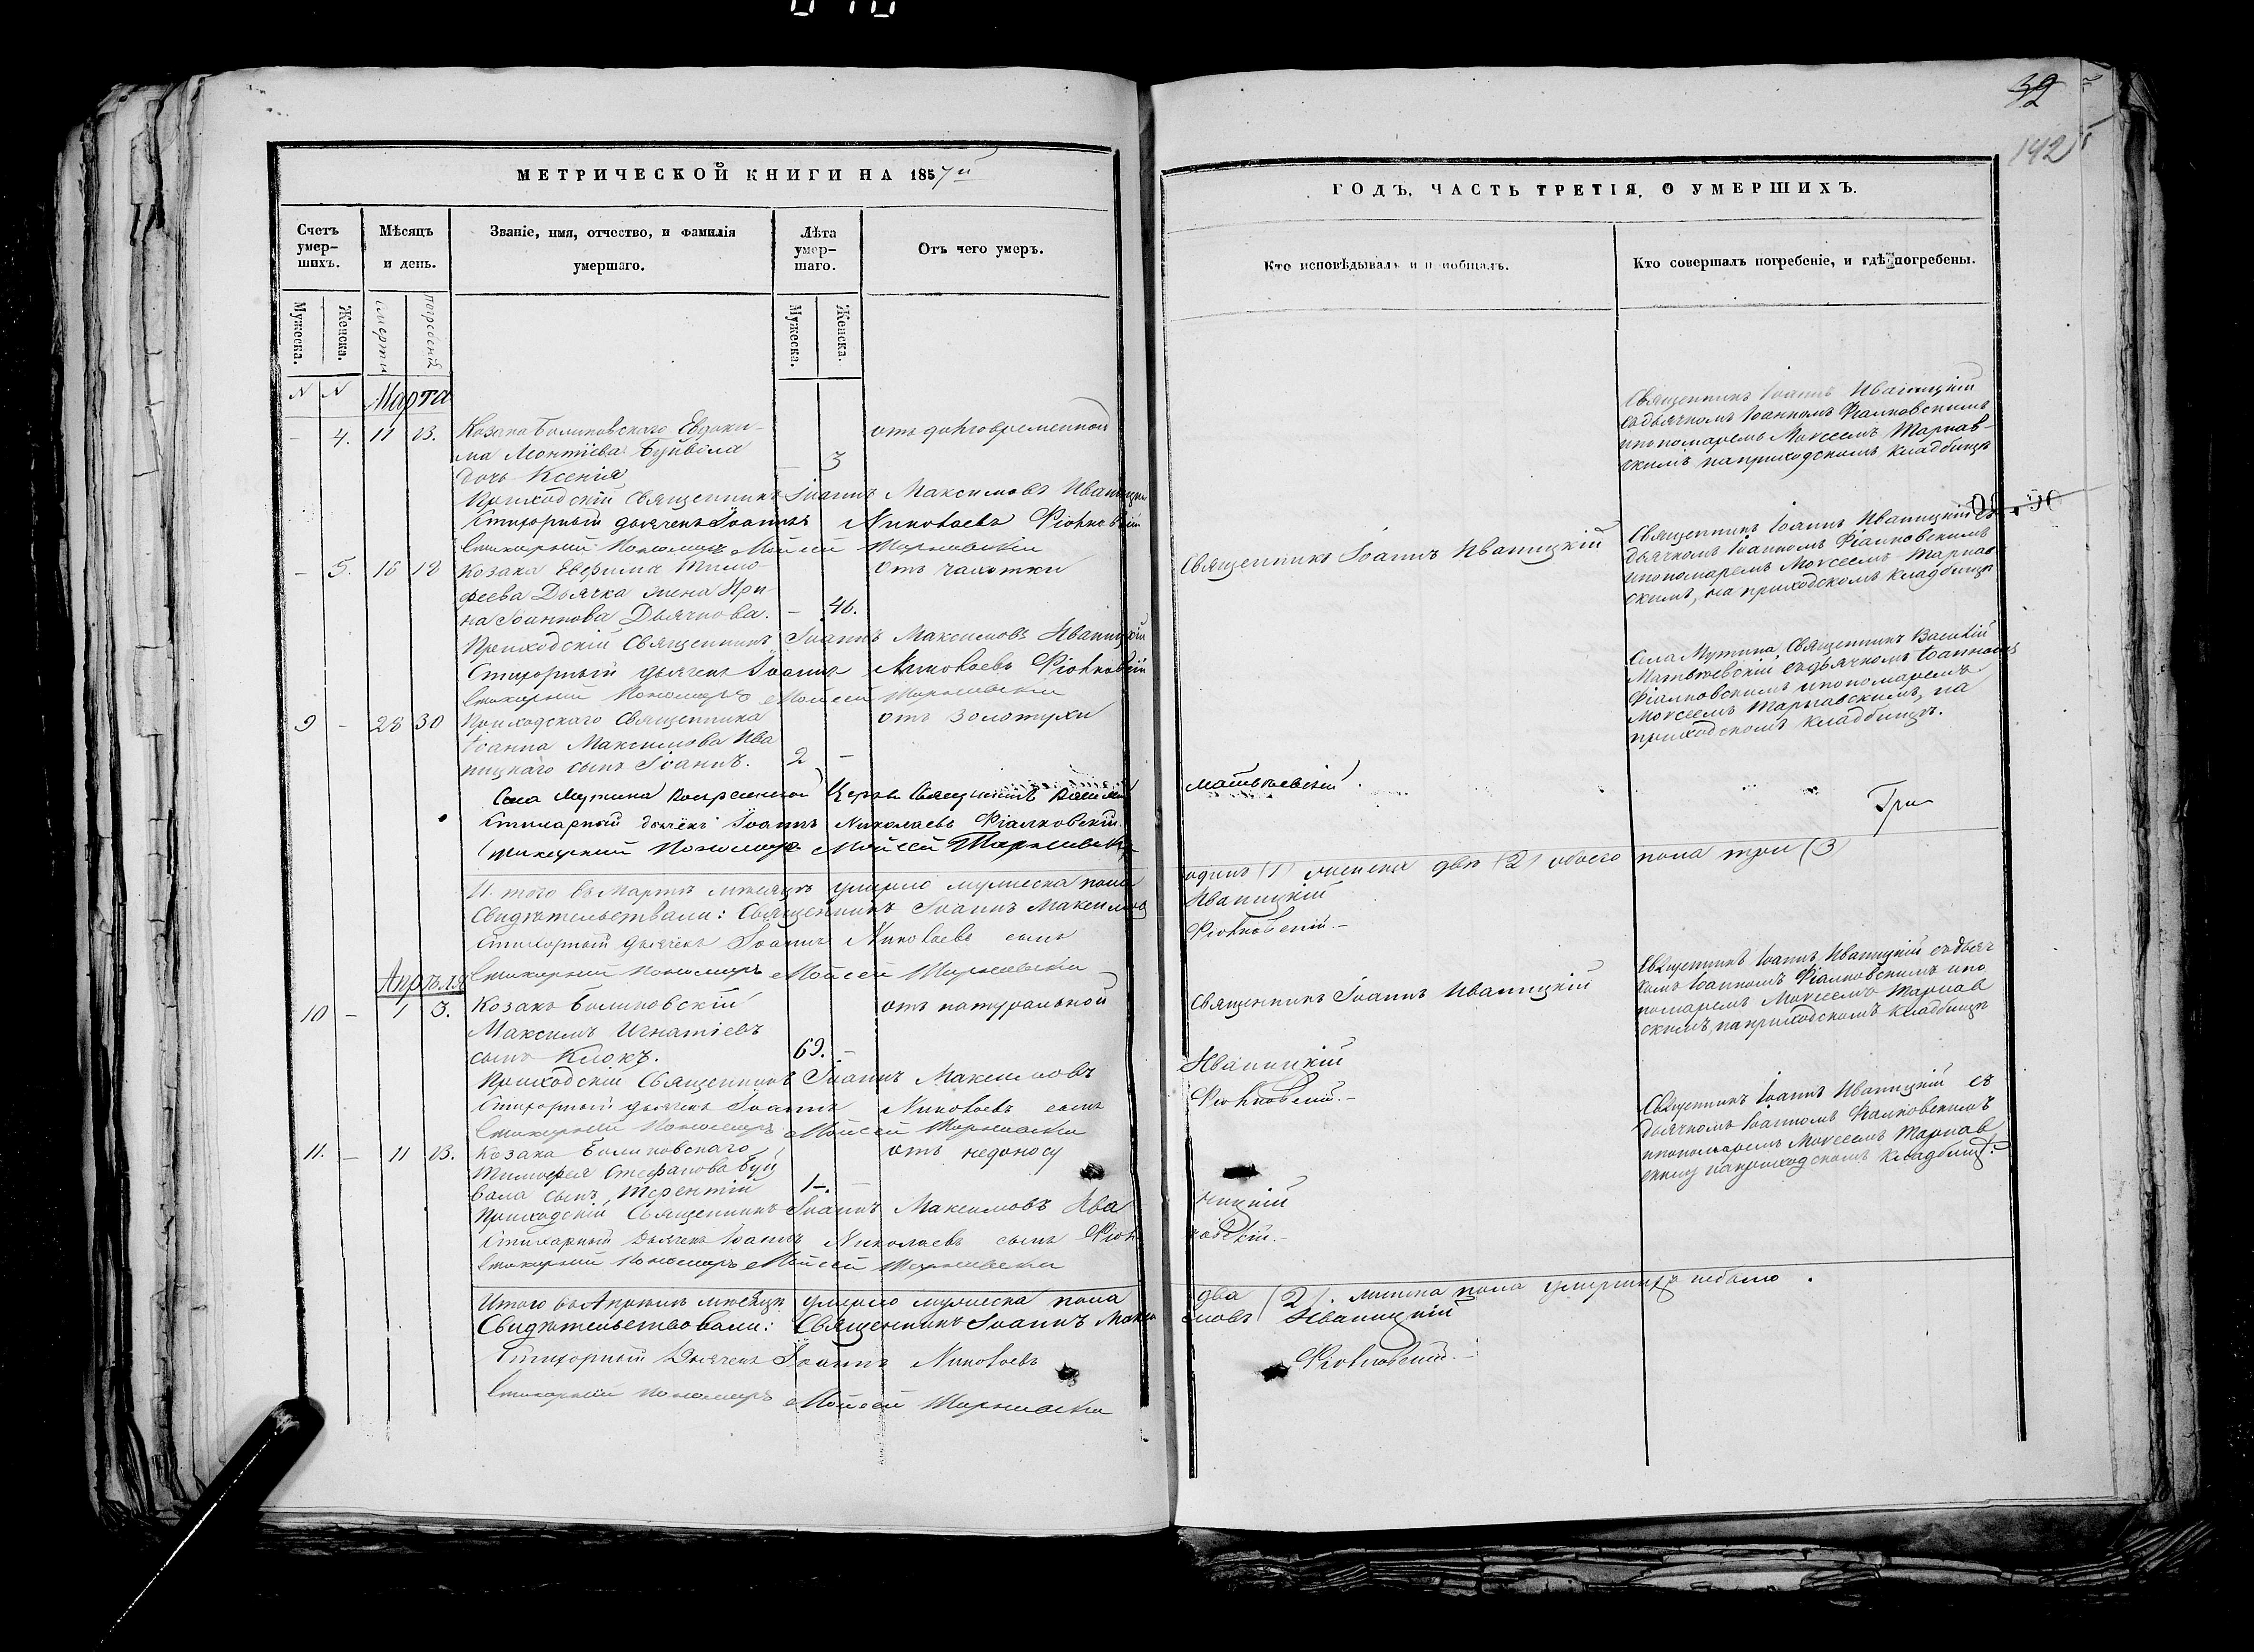 МЕТРИЧЕСКОЙ КНИГИ НА 1857й
Счетъ умер-шихъ.
Мѣсяцъ и день.
Званіе, имя, отчество, и фамилія умершаго.
Лѣта умер-шаго.
Отъ чего умеръ.
Мужеска.
Женска.
смерти
погребенія
Мужеска.
Женска.
N N Марта
- 4. 11 13. Козака Боликовскаго Евдоки-
ма Леонтіева Буйвола
дочь Ксенія - 3
отъ долговременной
Приходскій Священникъ Іоаннъ Максимовъ Иваницкій
Стихарный дьячекъ Іоаннъ Николаевъ Фіалковскій
Стихарный Пономарь Мойсей Тарнавскій
- 5. 16 18 Козака Евфима Тимо
феева Дьячка жена Ири
на Іоаннова Дьячкова. - 46.
отъ чахотки
Приходскій Священникъ Іоаннъ Максимовъ Иваницкій
Стихарный дьячекъ Іоаннъ Николаевъ Фіалковскій
Стихарный Пономарь Мойсей Тарнавскій
9 - 28 30 Приходскаго Священника
Іоанна Максимова Ива
ницкаго сынъ Іоаннъ. 2 -
отъ золотухи
Села Мутина Воскресенской Церкви Священникъ Василій
Стихарный дьячекъ Іоаннъ Николаевъ Фіалковскій.
Стихарный Пономарь Мойсей Тарнавскій
И того въ Мартѣ мѣсяцѣ умерло мужеска пола
Свидѣтельствовали: Священникъ Іоаннъ Максимовъ
Стихарный дьячекъ Іоаннъ Николаевъ сынъ
Стихарный Пономарь Мойсей Тарнавскій
Апрѣля
10 - 1 3. Козакъ Боликовскій
Максимъ Игнатіевъ
сынъ Клокъ. 69. -
отъ натуральной
Приходскій Священникъ Іоаннъ Максимовъ
Стихарный дьячекъ Іоаннъ Николаевъ сынъ
Стихарный Пономарь Мойсей Тарнавскій
11. - 11 13. Козака Боликовскаго
Тимофея Стефанова Буй
вала сынъ Терентій 1-. -
отъ недоносу
Приходскій Священникъ Іоаннъ Максимовъ Ива
Стихарный Дьячекъ Іоаннъ Николаевъ сынъ Фіал
Стихарный Пономарь Мойсей Тарнавскій
Итого въ Апрѣлѣ мѣсяцѣ умерло мужеска пола
Свидѣтельствовали: Священникъ Іоаннъ Макси
Стихарный Дьячекъ Іоаннъ Николаевъ
Стихарный Пономарь Мойсей Тарнавскій
32
142
ГОДЪ, ЧАСТЬ ТРЕТІЯ, О УМЕРШИХЪ.
Кто исповѣдывалъ и пріобщалъ.
Кто совершалъ погребеніе, и гдѣ погребены.
Священникъ Іоаннъ Иваницкій
съ дьячкомъ Іоанномъ Фіалковскимъ
и пономаремъ Моѵсеемъ Тарнав-
скимъ на приходскомъ кладбищѣ
Священникъ Іоаннъ Иваницкій
Священникъ Іоаннъ Иваницкій съ
дьячкомъ Іоанномъ Фіалковскимъ
и пономаремъ Моѵсеемъ Тарнав
скимъ, на приходскомъ кладбищѣ
Села Мутина Священникъ Василій
Матвѣевскій съ дьячкомъ Іоанномъ
Фіалковскимъ и пономаремъ
Моѵсеемъ Тарнавскимъ, на
приходскомъ кладбищѣ.
Матвѣевскій.
Три
одинъ (1) женска двѣ (2) обоего пола три (3)
Иваницкій
Фіалковскій.-
Священникъ Іоаннъ Иваницкій
Священникъ Іоаннъ Иваницкій съ дьяч
комъ Іоанномъ Фіалковскимъ и по
номаремъ Моѵсеемъ Тарнав
скимъ, на приходскомъ кладбищѣ
Иваницкій
Фіалковскій.-
Священникъ Іоаннъ Иваницкій съ
дьячкомъ Іоанномъ Фіалковскимъ
и пономаремъ Моѵсеемъ Тарнав
скимъ на приходскомъ кладбищѣ.
ницкій
ковскій.-
два (2). женска пола умершихъ небыло.
мовъ Иваницкій
Фіалковскій.-